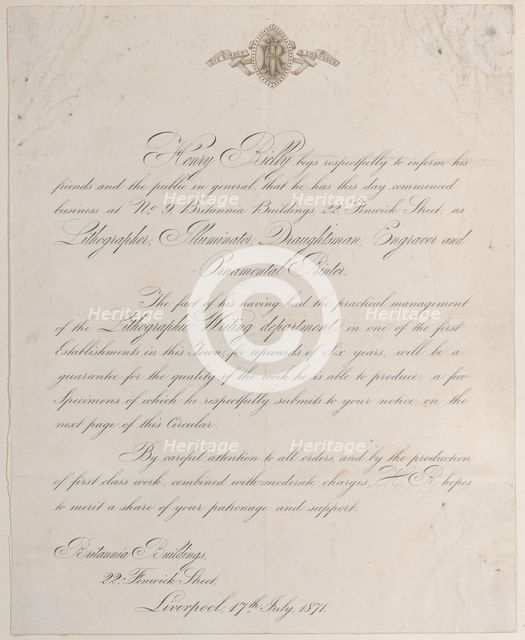 DIE SINKER & EMBOSSER
HR
Henry Rielly begs respectfully to inform his
friends and the public in general, that he has this day commenced
business at No. 9, Britannia Buildings, 22, Fenwick Street, as
Lithographer, Illuminator, Draughtsman, Engraver and
Ornamental Printer.
The fact of his having had the practical management
of the Lithographic Writing department in one of the first
Establishments in this Town, for upwards of Six years, will be a
guarantee for the quality of the work he is able to produce, a few
Specimens of which he respectfully submits to your notice on the
next page of this Circular.
By careful attention to all orders, and by the production
of first class work, combined with moderate charges, H. R. hopes
to merit a share of your patronage and support.
Britannia Buildings,
22, Fenwick Street.
Liverpool, 17th July, 1871.
Heritage Heritage
Heritage Heritage
Heritage Heritage